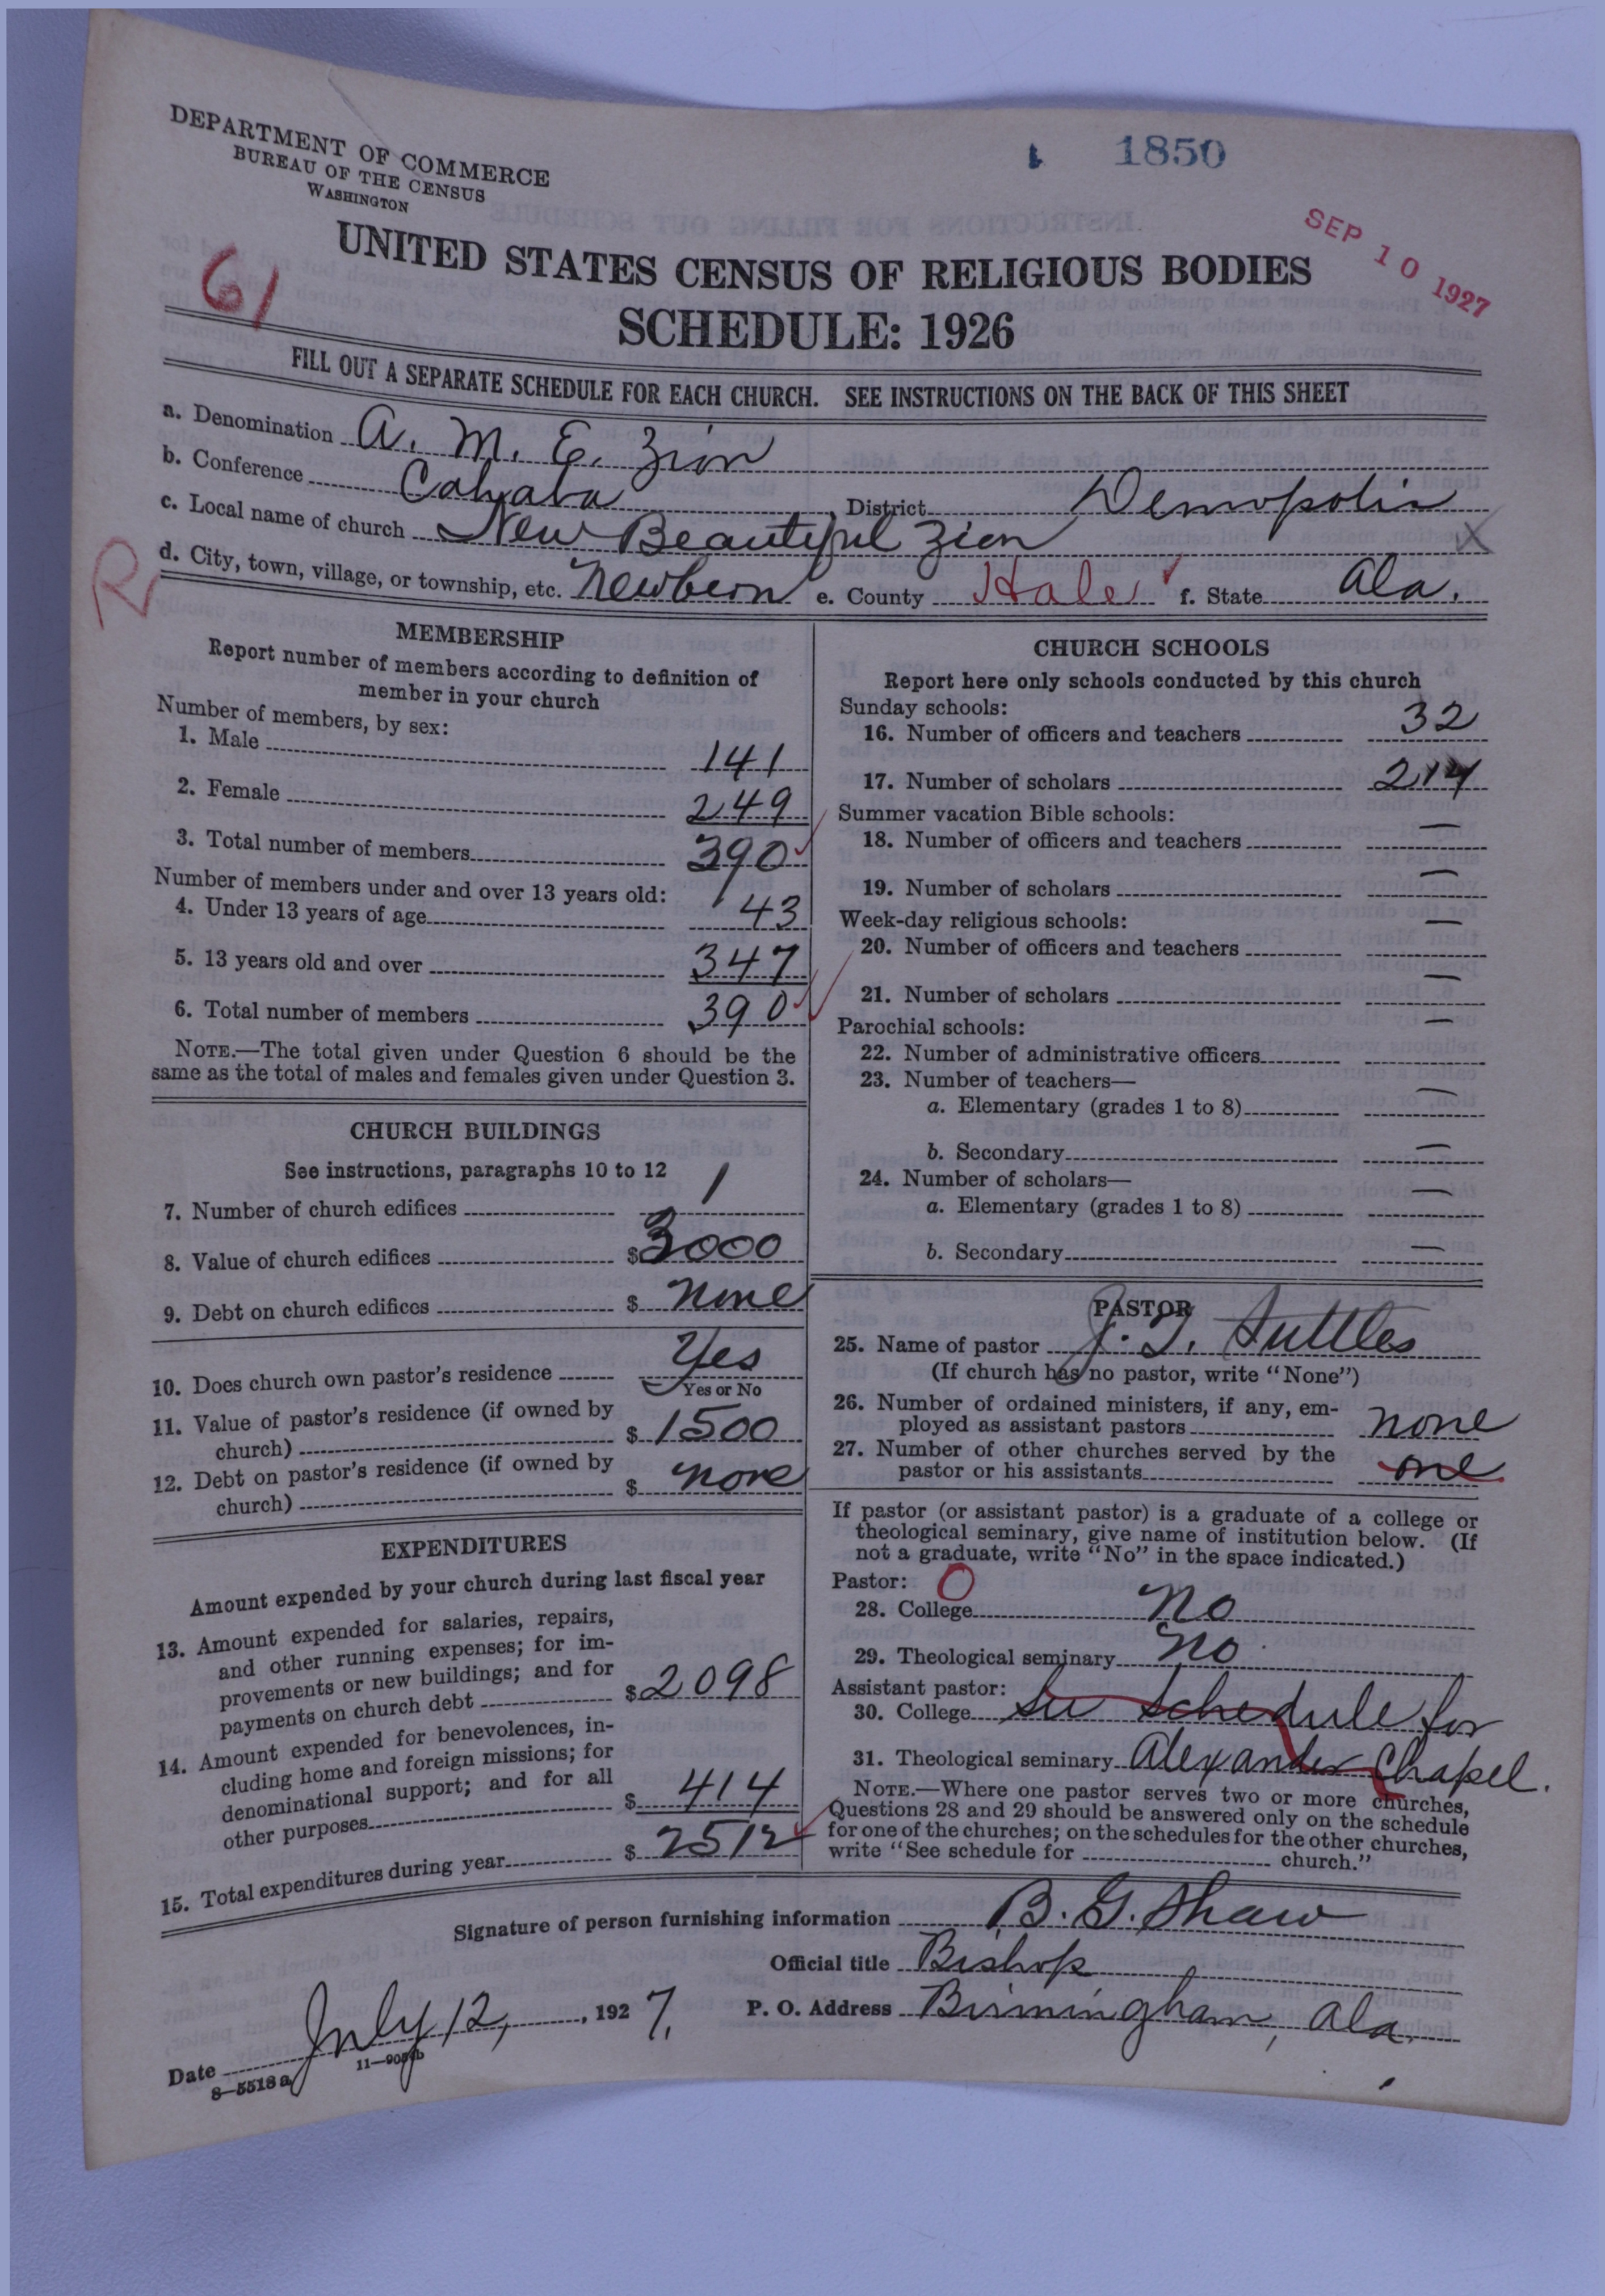 DEPARTMENT OF COMMERCE
BUREAU OF THE CENSUS
WASHINGTON
1850
SEP 10 1927
61
UNITED STATES CENSUS OF RELIGIOUS BODIES
SCHEDULE: 1926
FILL OUT A SEPARATE SCHEDULE FOR EACH CHURCH. SEE INSTRUCTIONS ON THE BACK OF THIS SHEET
a. Denomination A. M. E. Zion
b. Conference Cahaba, District Demopolis
c. Local name of church New Beautiful Zion X
R
d. City, town, village, or township, etc. Newbern e. County Hale f. State Ala.
MEMBERSHIP
Report number of members according to definition of
member in your church
Number of members, by sex:
1. Male 141
2. Female 249
3. Total number of members 390
Number of members under and over 13 years old:
4. Under 13 years of age 43
5. 13 years old and over 347
6. Total number of members 390
NOTE.—The total given under Question 6 should be the
same as the total of males and females given under Question 3.
CHURCH BUILDINGS
See instructions, paragraphs 10 to 12
7. Number of church edifices 1
8. Value of church edifices $3000
9. Debt on church edifices $ none
10. Does church own pastor's residence Yes
Yes or No
11. Value of pastor's residence (if owned by
church) $1500
12. Debt on pastor's residence (if owned by
church) $ none
EXPENDITURES
Amount expended by your church during last fiscal year
13. Amount expended for salaries, repairs,
and other running expenses; for im-
provements or new buildings; and for
payments on church debt $2098
14. Amount expended for benevolences, in-
cluding home and foreign missions; for
denominational support; and for all
other purposes $ 414
15. Total expenditures during year $ 2512
CHURCH SCHOOLS
Report here only schools conducted by this church
Sunday schools:
16. Number of officers and teachers 32
17. Number of scholars 214
Summer vacation Bible schools:
18. Number of officers and teachers —
19. Number of scholars —
Week-day religious schools:
20. Number of officers and teachers —
21. Number of scholars —
Parochial schools:
22. Number of administrative officers —
23. Number of teachers—
a. Elementary (grades 1 to 8) —
b. Secondary —
24. Number of scholars—
a. Elementary (grades 1 to 8) —
b. Secondary —
PASTOR
25. Name of pastor J. T. Suttles
(If church has no pastor, write "None")
26. Number of ordained ministers, if any, em-
ployed as assistant pastors none
27. Number of other churches served by the
pastor or his assistants one
If pastor (or assistant pastor) is a graduate of a college or
theological seminary, give name of institution below. (If
not a graduate, write "No" in the space indicated.)
Pastor: O
28. College No
29. Theological seminary No.
Assistant pastor:
30. College See schedule for
31. Theological seminary Alexander Chapel.
NOTE.—Where one pastor serves two or more churches,
Questions 28 and 29 should be answered only on the schedule
for one of the churches; on the schedules for the other churches,
write "See schedule for church."
Signature of person furnishing information B. G. Shaw
Official title Bishop
Date July 12, , 1927. P. O. Address Birmingham, Ala.
8—5518a